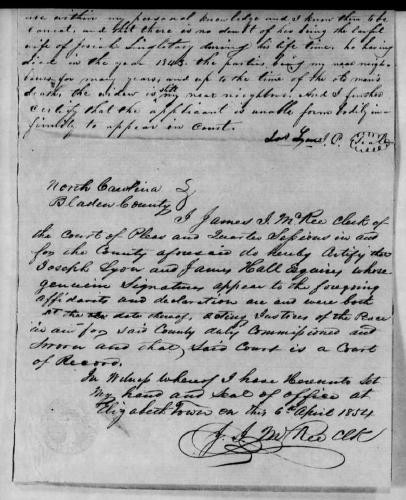 are within my personal knowledge and I know them to be
correct, and that there is no doubt of her being the lawful
wife of Josiah Singletary during his life time, he having
died in the year 1843. the parties being my near neigh-
bours for many years, and up to the time of the old man's
death, the widow is still my near neighbor. And I further
certify that the applicant is unable form bodily in-
firmity to appear in Court.
Jos Lyon J. P. Seal
North Carolina
Bladen County
I James I. McRee Clerk of
the Court of Pleas and Quarter Sessions in and
for the County aforesaid do hereby Certify that
Joseph Lyon and James Hall Esquires whose
genuine Signatures appear to the foregoing
affidavits and declaration are and were both
at the date thereof, acting Justices of the Peace
in and for said County duly Commissioned and
sworn and that said Court is a Court
of Record.
In Witness whereof I have Hereunto Set
My hand and Seal of office at
Elizabeth Town on this 6th April 1854
J. I. McRee Clk